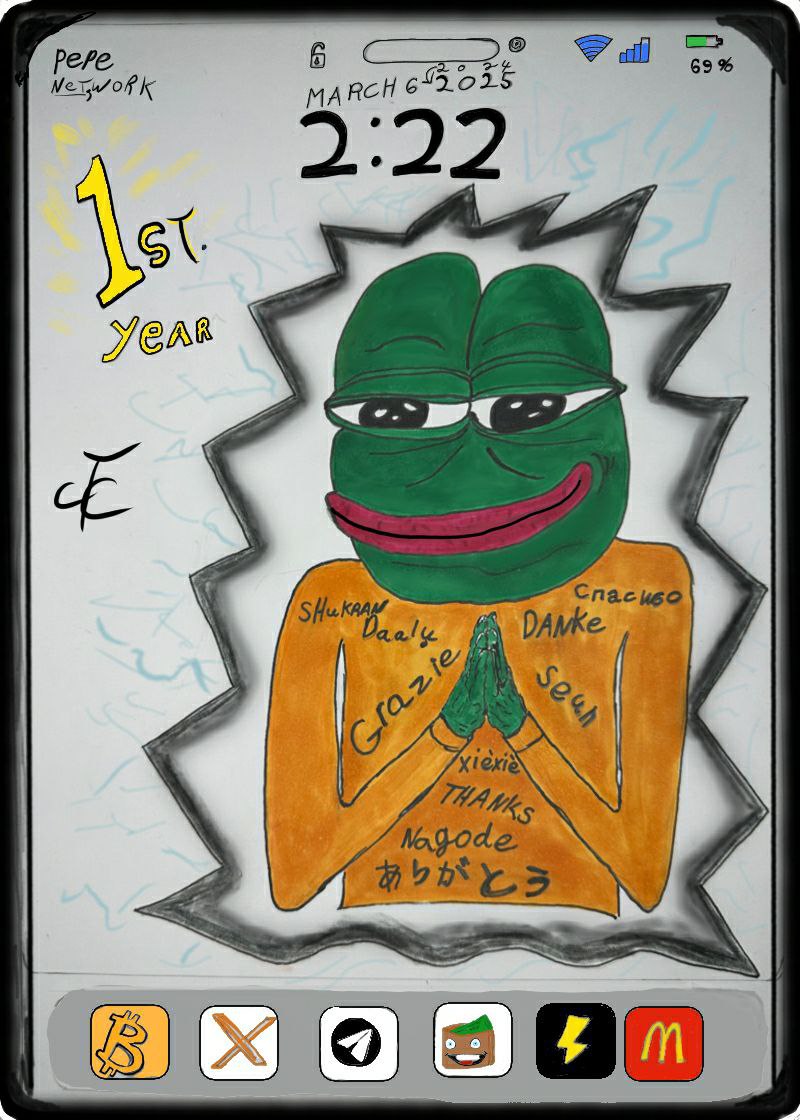 PePe
NeTWORK
69 %
MARCH 6 2025
2:22
1ST.
YEAR
SHUKRAN
Daalụ
Спасибо
DANKe
Grazie
xièxiè
THANKS
Nagode
ありがとう